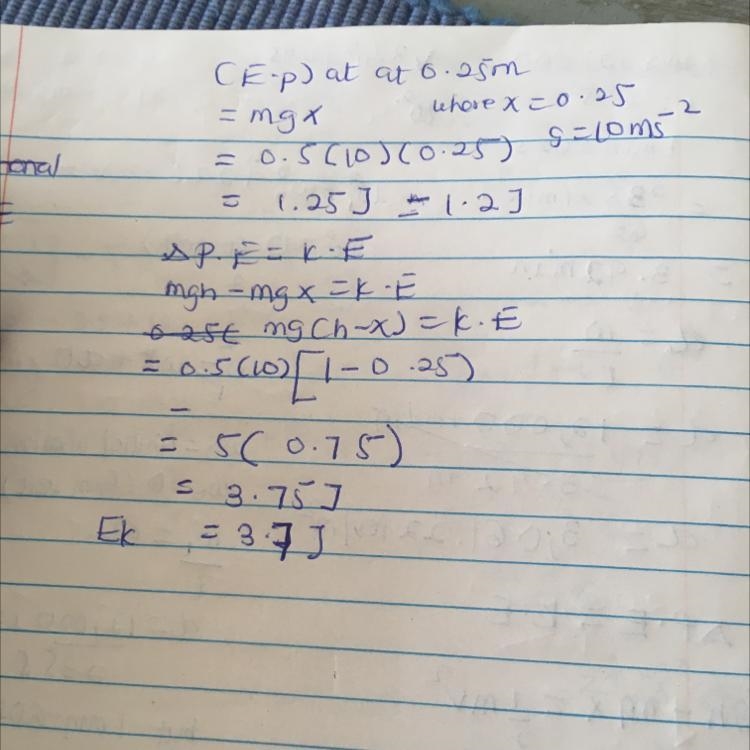 (E.p) at at 0.25m
= mgx where x = 0.25
g = 10ms⁻²
onal
= 0.5(10)(0.25)
= 1.25J = 1.2J
ΔP.E = K.E
mgh - mgx = K.E
0.25( mg(h-x) = K.E
= 0.5(10)[1 - 0.25)
=
= 5(0.75)
= 3.75J
Ek = 3.7J